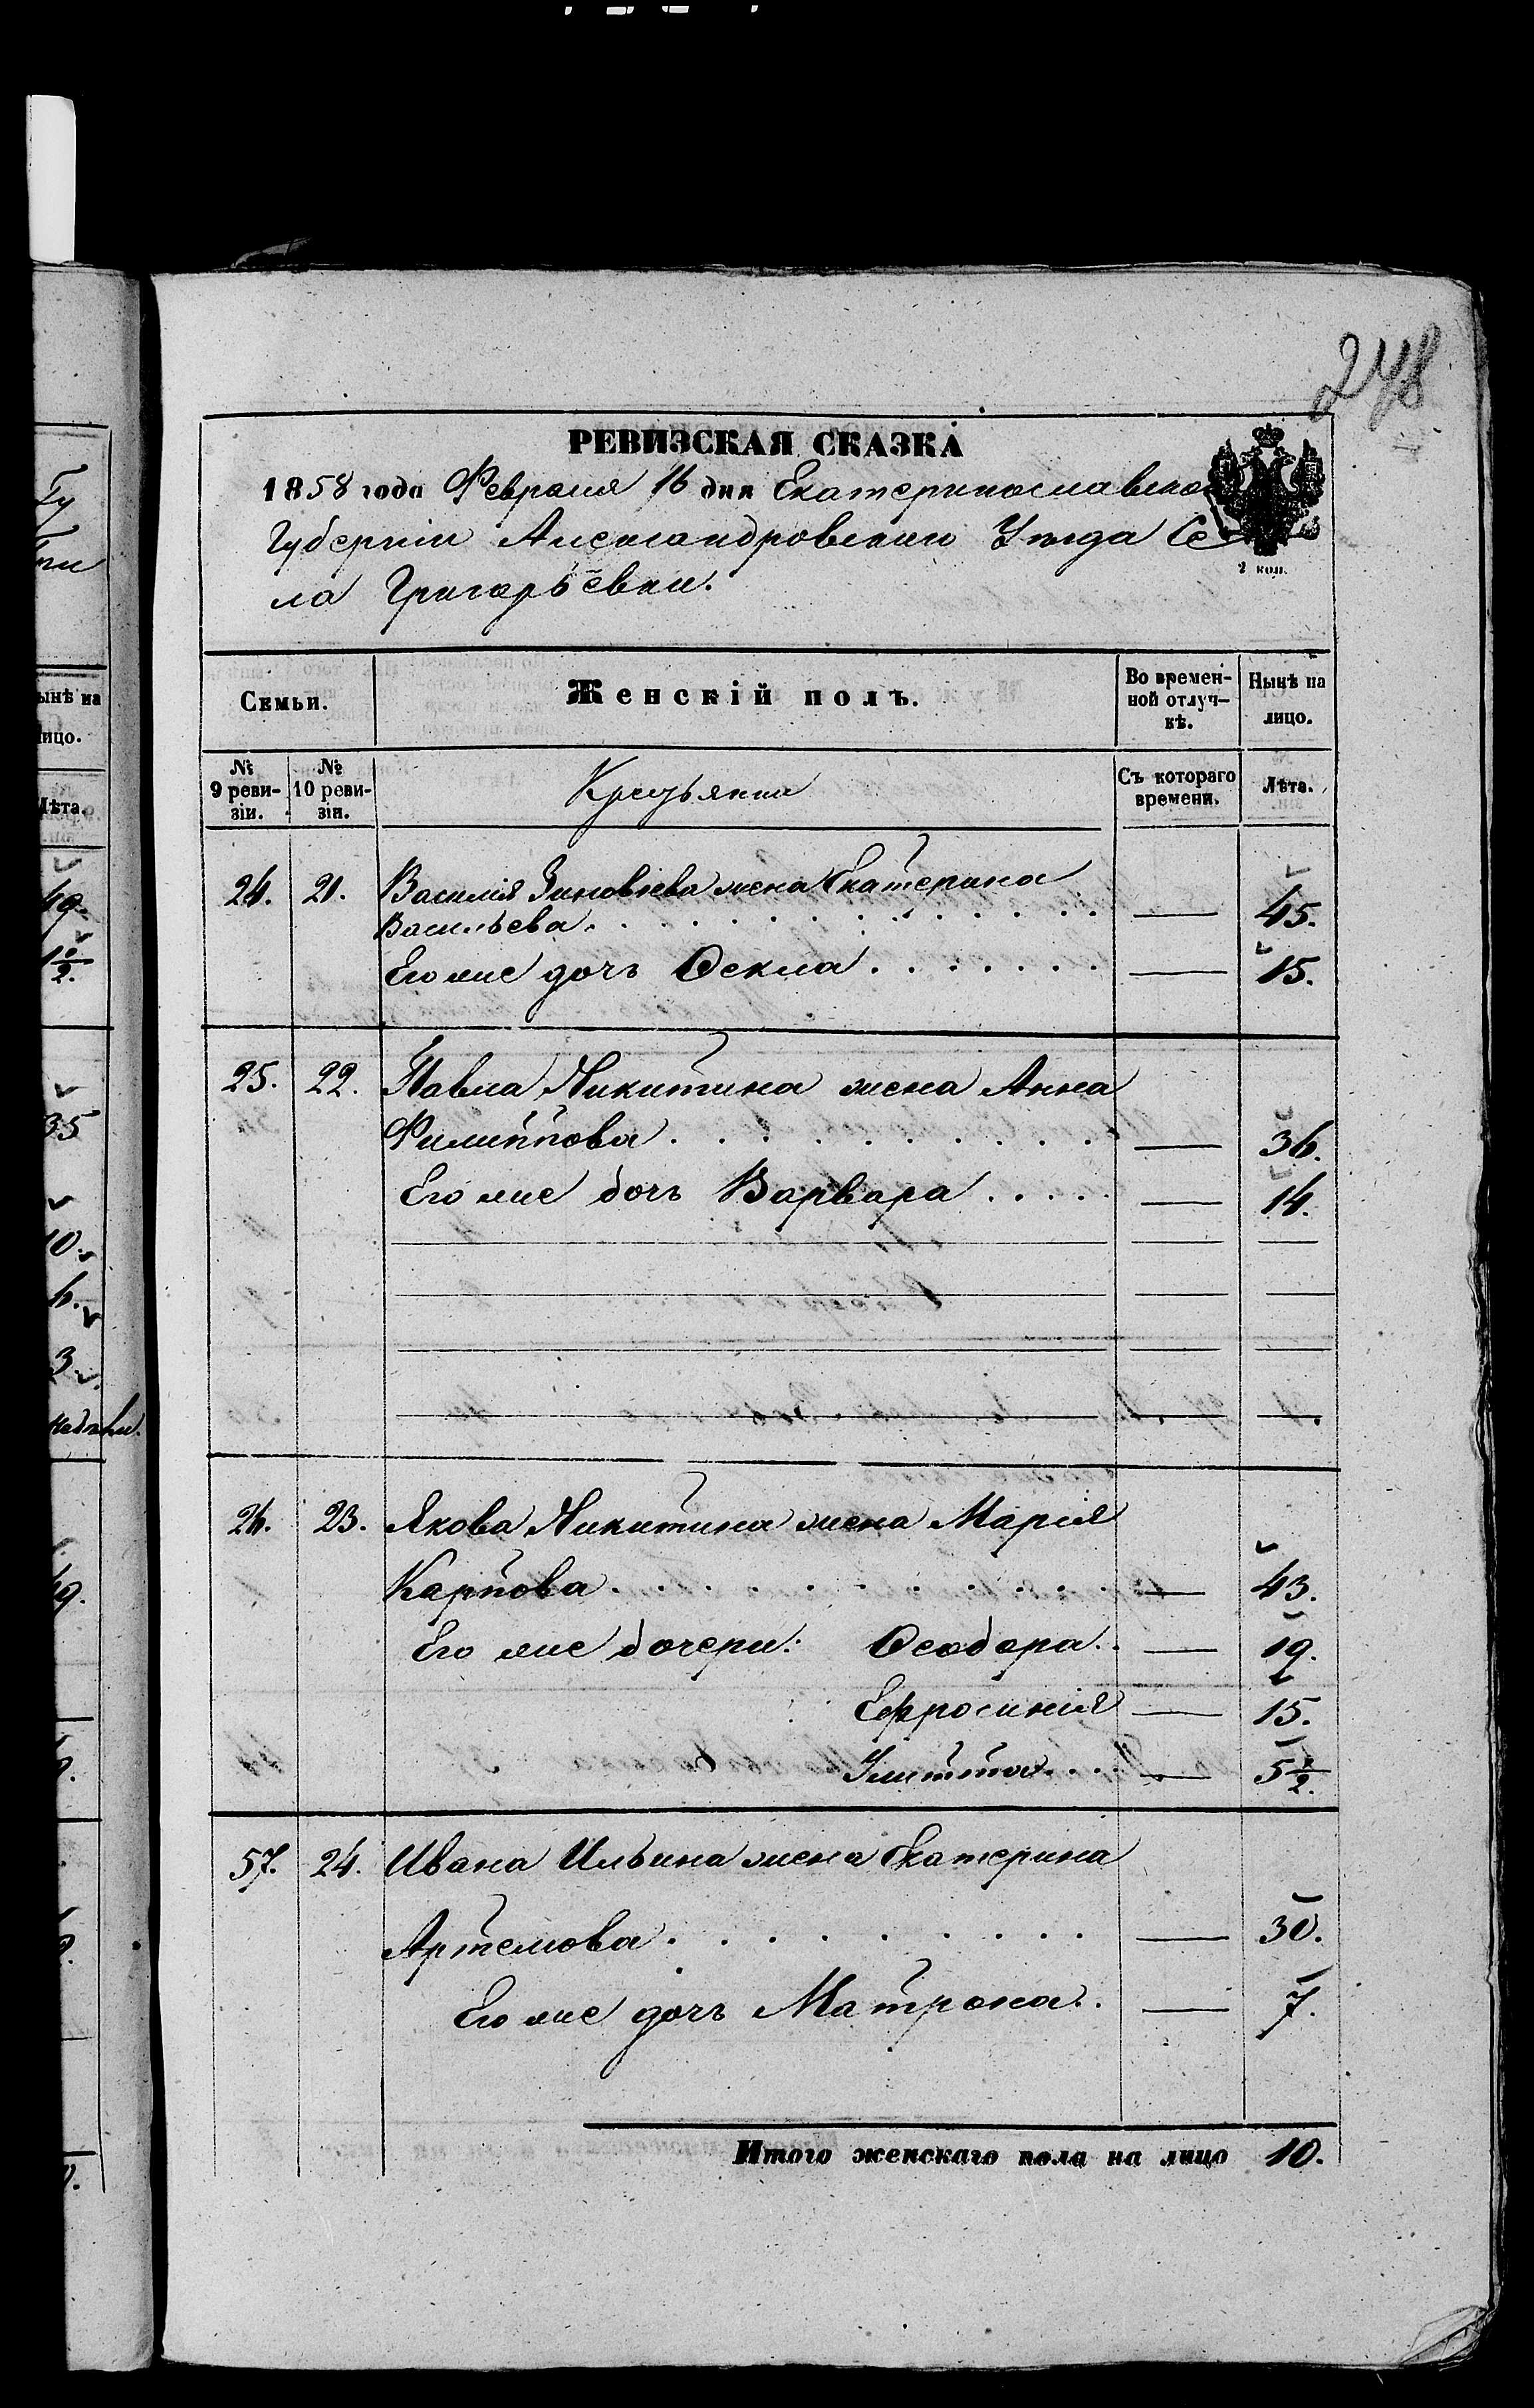 248
РЕВИЗСКАЯ СКАЗКА
1858 года Февраля 16 дня Екатеринославской
Губерніи Александровскаго Уѣзда Се
ла Григорьевки.
2 коп.
Семьи.
Женскій полъ.
Во времен-
ной отлуч-
кѣ.
Нынѣ на
лицо.
№
9 реви-
зіи.
№
10 реви-
зіи.
Крестьяне
Съ котораго
времени.
Лѣта.
24. 21. Василія Зиновіева жена Екатерина
Васильева. — 45.
Его же дочь Ѳекла — 15.
25. 22. Павла Никитина жена Анна
Филиппова — 36.
Его же дочь Варвара — 14.
26. 23. Якова Никитина жена Марія
Карпова — 43.
Его же дочери: Ѳеодора — 19.
Ефросинія — 15.
Улитта — 5 1/2.
57. 24. Ивана Ильина жена Екатерина
Артемова — 30.
Его же дочь Матрона — 7.
Итого женскаго пола на лицо 10.